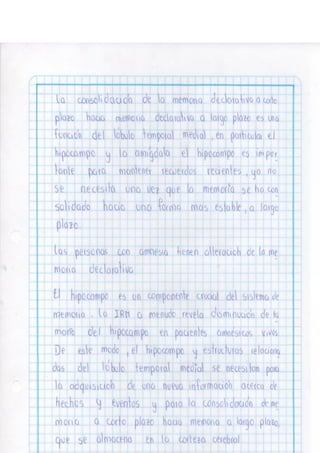 La consolidación de la memoria declarativa a corto
plazo hacia memoria declarativa a largo plazo es una
función del lóbulo temporal medial, en particular el
hipocampo y la amígdala el hipocampo es imper
tante para mantener recuerdos recientes, ya no
se necesita una vez que la memoria se ha con
solidado hacia una forma mas estable, a largo
plazo.
Las personas con amnesia tienen alteración de la me
moria declarativa
El hipocampo es un componente crucial del sistema de
memoria. La IRM a menudo revela disminución de ta
maño del hipocampo en pacientes amnésicos vivos.
De este modo, el hipocampo y estructuras relaciona
das del lóbulo temporal medial se necesitan para
la adquisición de una nueva información acerca de
hechos y eventos y para la consolidación de me
moria a corto plazo hacia memoria a largo plazo,
que se almacena en la corteza cerebral.